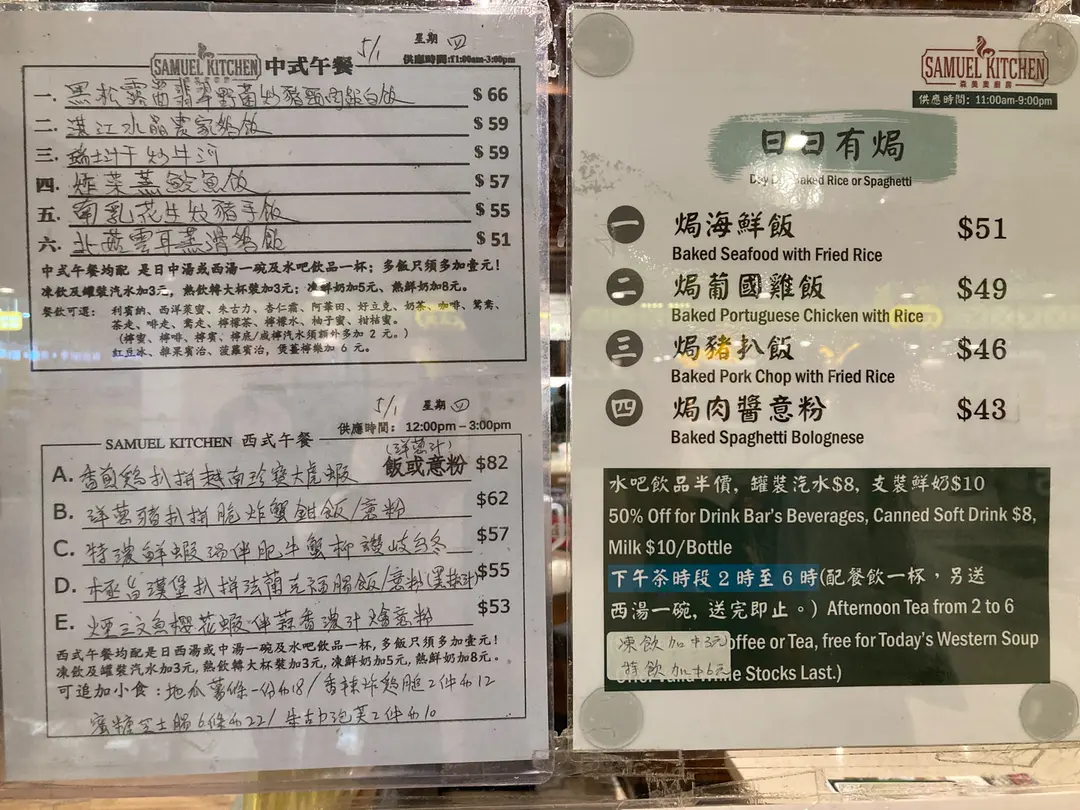 SAMUEL KITCHEN 中式午餐 5/1 星期 四
供應時間:11:00am-3:00pm
一. 黑松露菌翡翠野菌炒豬頸肉銀白飯 $66
二. 湛江水晶農家鷄飯 $59
三. 瑞士汁干炒牛河 $59
四. 炸菜蒸鯇魚飯 $57
五. 南乳花生炆豬手飯 $55
六. 北菇雲耳蒸滑鷄飯 $51
中式午餐均配 是日中湯或西湯一碗及水吧飲品一杯; 多飯只須多加壹元!
凍飲及罐裝汽水加3元, 熱飲轉大杯裝加3元; 凍鮮奶加5元、熱鮮奶加8元。
餐飲可選: 利賓納、西洋菜蜜、朱古力、杏仁霜、阿華田、好立克、奶茶、咖啡、鴛鴦、
茶走、啡走、鴦走、檸檬茶、檸檬水、柚子蜜、柑桔蜜。
(檸蜜、檸啡、檸賓、檸底/咸檸汽水須額外多加 2 元。)
紅豆冰、雜果賓治、菠蘿賓治、煲薑檸樂加 6 元。
5/1 星期 四
供應時間: 12:00pm – 3:00pm
SAMUEL KITCHEN 西式午餐
(洋蔥汁)
A. 香煎鷄扒拼越南珍寶大虎蝦 飯或意粉 $82
B. 洋蔥豬扒拼脆炸蟹鉗飯/意粉 $62
C. 特濃鮮蝦湯伴肥牛蟹柳讚岐烏冬 $57
D. 極品漢堡扒拼法蘭克福腸飯/意粉(黑椒汁) $55
E. 煙三文魚櫻花蝦伴蒜香濃汁燴意粉 $53
西式午餐均配是日西湯或中湯一碗及水吧飲品一杯, 多飯只須多加壹元!
凍飲及罐裝汽水加3元, 熱飲轉大杯裝加3元, 凍鮮奶加5元, 熱鮮奶加8元。
可追加小食: 地瓜薯條一份加18/ 香辣炸鷄腿2件加12
蜜糖芝士腸6條加22/ 朱古力泡芙2件加10
SAMUEL KITCHEN
森美奧廚房
供應時間: 11:00am-9:00pm
日日有焗
Baked Rice or Spaghetti
一 焗海鮮飯 $51
Baked Seafood with Fried Rice
二 焗葡國雞飯 $49
Baked Portuguese Chicken with Rice
三 焗豬扒飯 $46
Baked Pork Chop with Fried Rice
四 焗肉醬意粉 $43
Baked Spaghetti Bolognese
水吧飲品半價, 罐裝汽水$8, 支裝鮮奶$10
50% Off for Drink Bar's Beverages, Canned Soft Drink $8,
Milk $10/Bottle
下午茶時段 2 時至 6 時(配餐飲一杯，另送
西湯一碗, 送完即止。) Afternoon Tea from 2 to 6
凍飲加$3元 offee or Tea, free for Today's Western Soup
特飲加$6元 Stocks Last.)